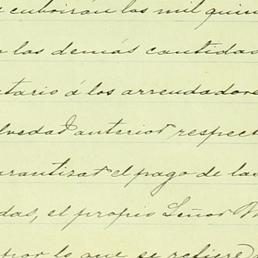 cubrirán las mil quin
a las demás cantidas
tario á los arrendadore
lvedad anterior respect
arantizar el pago de la
das, el propio Señor M
por lo que se refiere